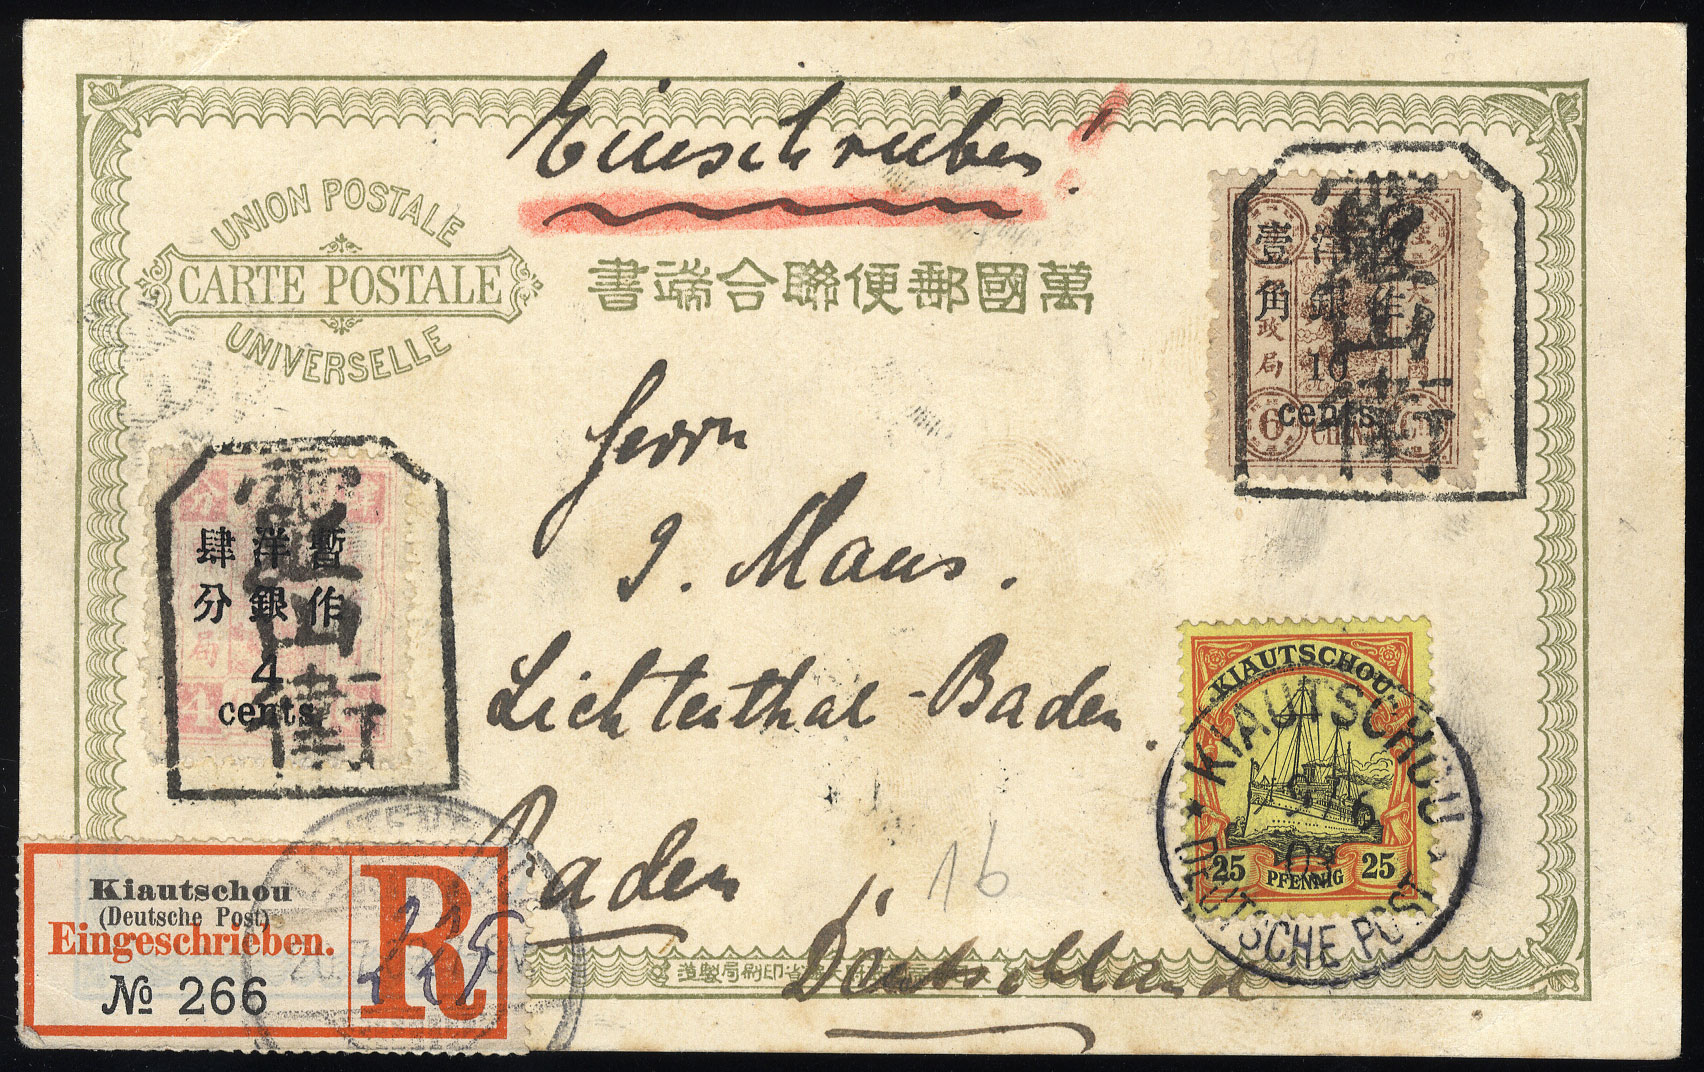 Einschreiben!
UNION POSTALE
CARTE POSTALE
UNIVERSELLE
萬國郵便聯合端書
暫作
洋銀
壹角
10
cents
政局
6
靈山衛
Herrn
J. Maus.
Lichtenthal-Baden.
Baden
Deutschland
16
暫作
洋銀
肆分
4
cents
局
4
靈山衛
KIAUTSCHOU
25 PFENNIG 25
KIAUTSCHOU
DEUTSCHE POST
Kiautschou
(Deutsche Post)
Eingeschrieben.
№ 266
R